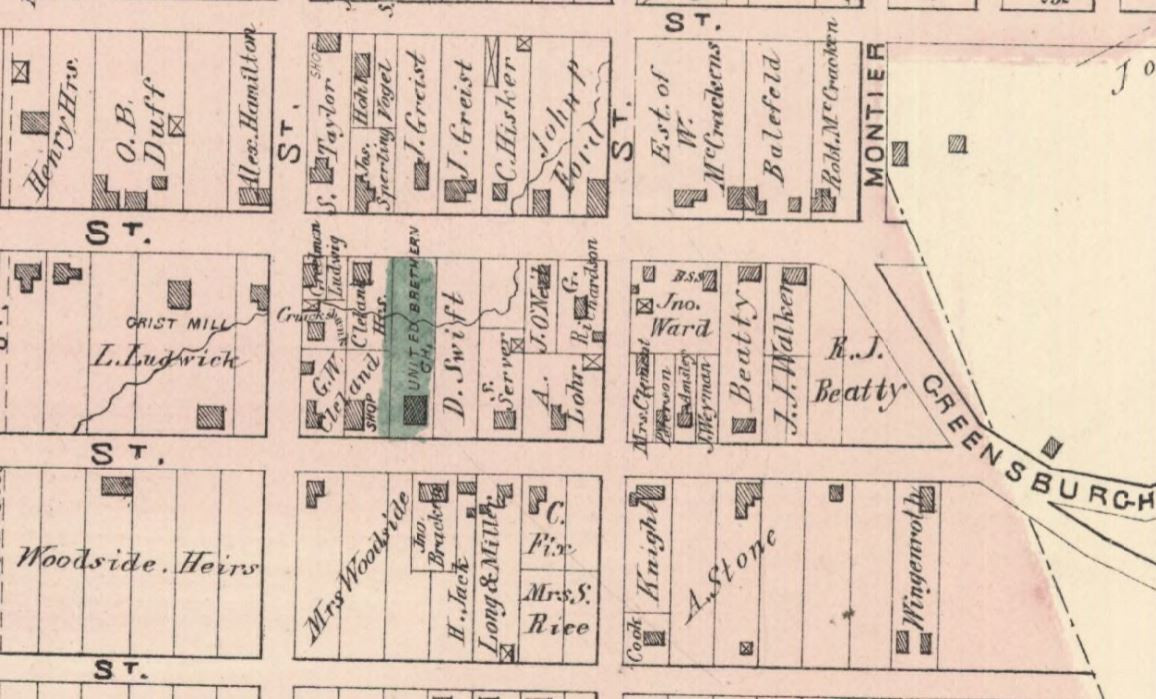 ST.
Henry Hrs.
O.B.
Duff
Alex. Hamilton
ST.
S. Taylor
SHOP
Hoh
Jos.
Sperling
Vogel
J. Greist
J. Greist
C. Hisker
John P
Ford
ST.
Est. of
W.
McCrackens
Balefeld
Robt. McCracken
MONTIER
Jo
ST.
GRIST MILL
L. Ludwick
Ludwig
Cleland
Hrs.
G.W.
Cleland
SHOP
UNITED BRETHERN
CH.
D. Swift
S.
Server
J. O'Neil
G.
Richardson
A.
Lohr
B.S.S.
Jno.
Ward
Mrs. Clement
J. Weyman
Beatty
J.J. Walker
R.J.
Beatty
GREENSBURGH
ST.
Woodside. Heirs
Mrs Woodside
Jno.
Bracken
H. Jack
Long & Miller
C.
Fix
Mrs S.
Rice
Knight
Cook
A. Stone
Wingenroth
ST.